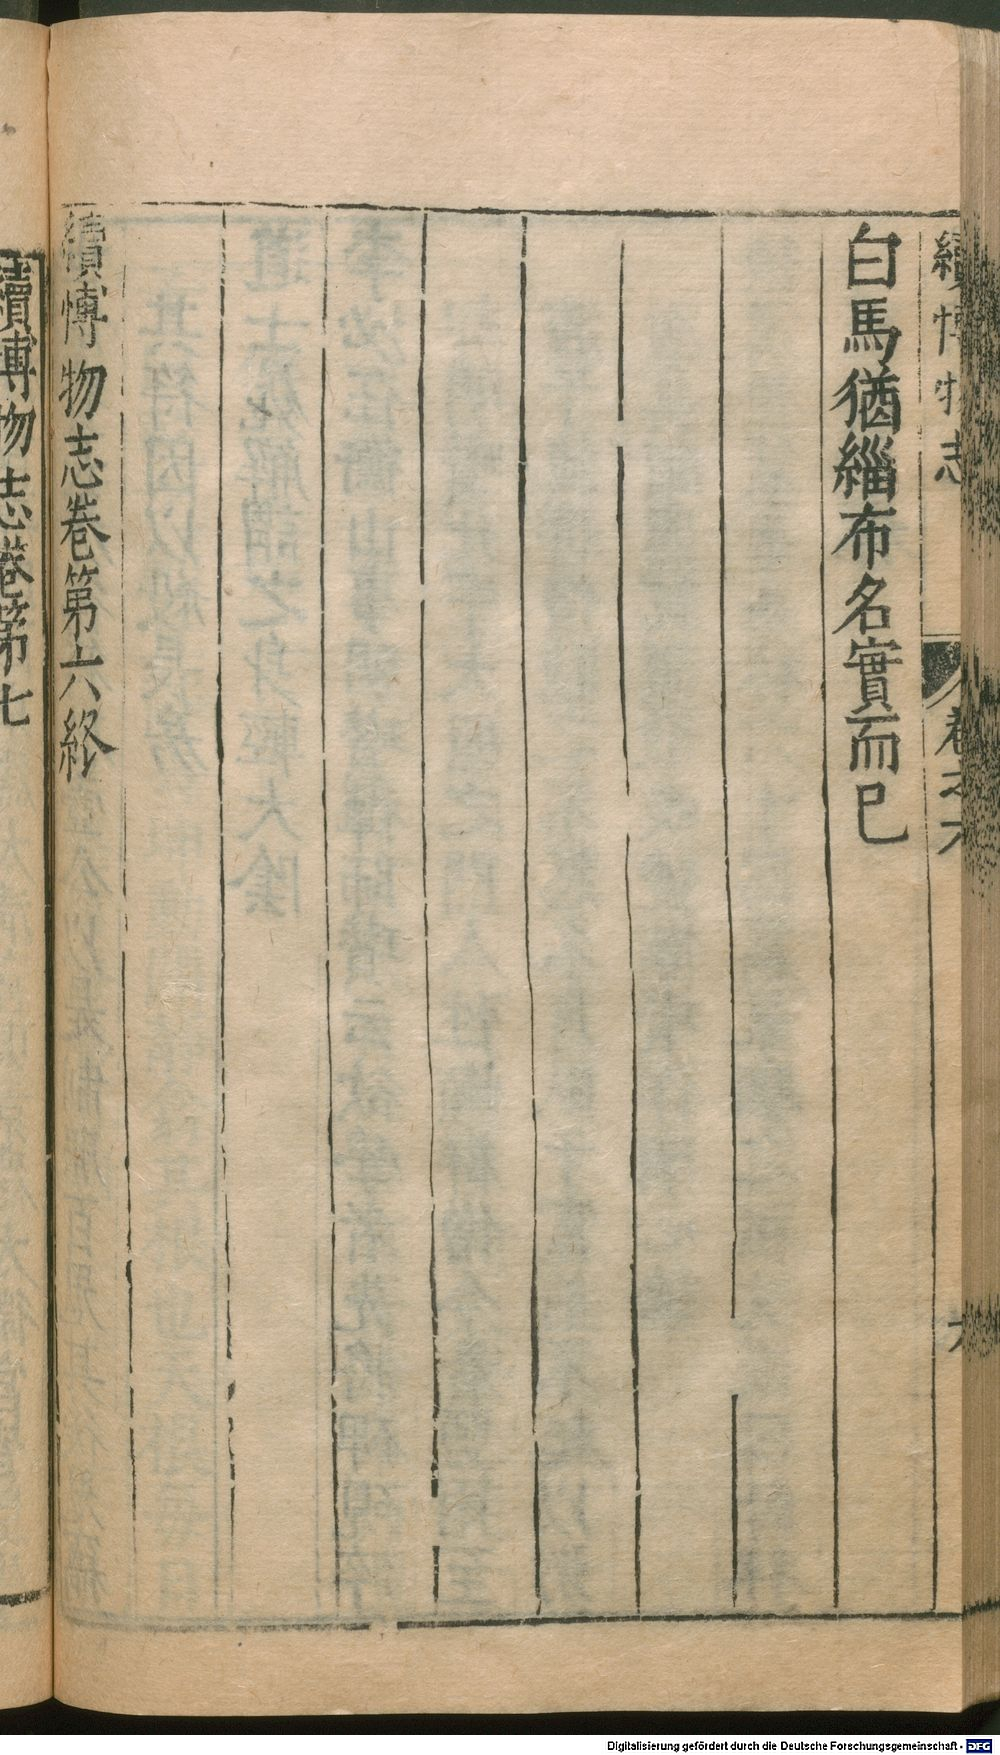 續博物志
卷之六
六
白馬猶緇布名實而已
續博物志卷第六終
續博物志卷第七
Digitalisierung gefördert durch die Deutsche Forschungsgemeinschaft - DFG